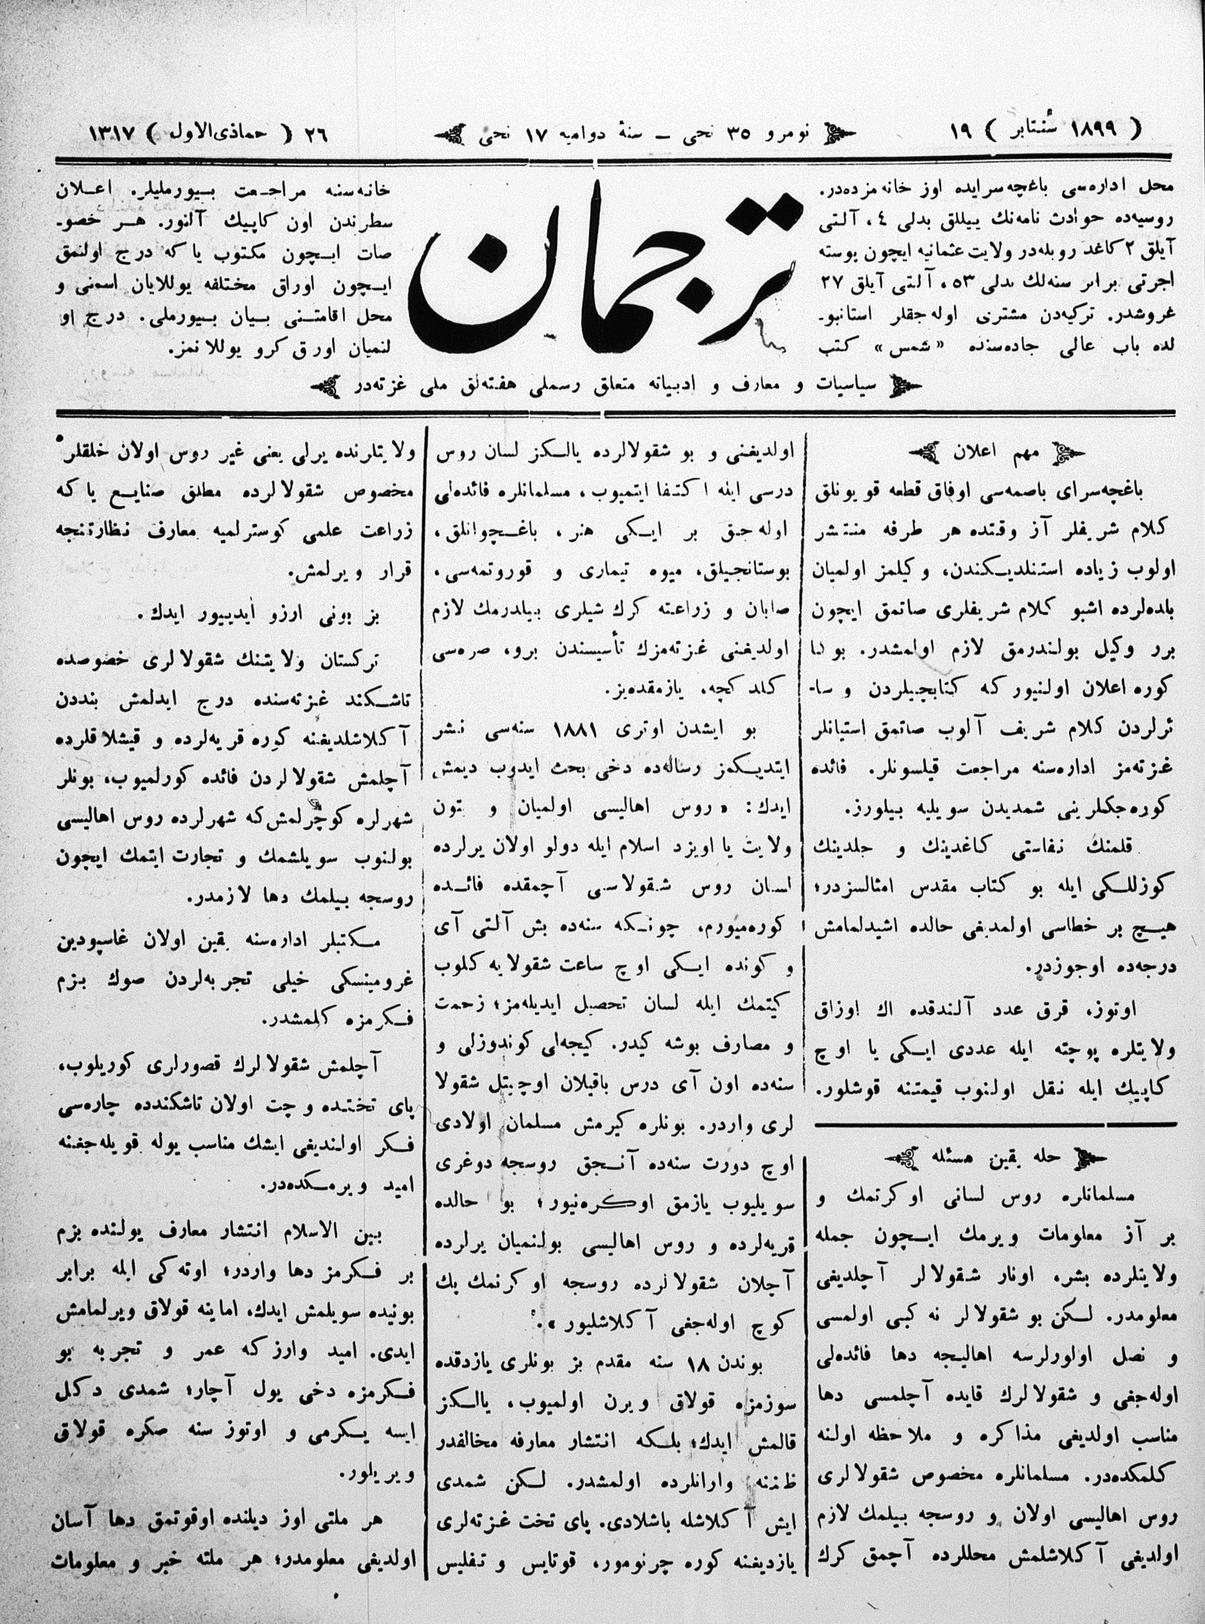 ( ١٨٩٩ سُنتابر ) ١٩
نومرو ٣٥ نحی – سنهٔ دوامیه ١٧ نحی
٢٦ ( جماذی‌الاول ) ١٣١٧
محل اداره‌سی باغچه‌سرایده اوز خانه‌مزده‌در.
روسیه‌ده حوادث نامه‌نك ییللق بدلی ٤، آلتی
آیلق ٢ كاغد روبله‌در ولایت عثمانیه ایچون پوسته
اجرتی برابر سنه‌لك بدلی ٥٣، آلتی آیلق ٢٧
غروشدر. تركیه‌دن مشتری اوله‌جقلر استانبو-
لده باب عالی جاده‌سنده «شمس» كتب
ترجمان
خانه‌سنه مراجعت بیورملیلر. اعلان
سطرندن اون كاپیك آلنور. هر خصو-
صات ایچون مكتوب یا كه درج اولنمق
ایچون اوراق مختلفه یوللایان اسمنی و
محل اقامتنی بیان بیورملی. درج او
لنمیان اورق كرو یوللانمز.
سیاسیات و معارف و ادبیاته متعلق رسملی هفته‌لق ملی غزته‌در
مهم اعلان
باغچه‌سرای باصمه‌سی اوفاق قطعه قویونلق
كلام شریفلر آز وقتده هر طرفه منتشر
اولوب زیاده استنلدیكندن، وكیلمز اولمیان
بلده‌لرده اشبو كلام شریفلری صاتمق ایچون
برر وكیل بولندرمق لازم اولمشدر. بوكا
كوره اعلان اولنیور كه كتابچیلردن و سا-
ئرلردن كلام شریف آلوب صاتمق استیانلر
غزته‌مز اداره‌سنه مراجعت قیلسونلر. فائده
كوره‌جكلرینی شمدیدن سویلیه بیلورز.
قلمنك نفاستی كاغدینك و جلدینك
كوزللكی ایله بو كتاب مقدس امثالسزدر؛
هیچ بر خطاسی اولمدیغی حالده اشیدلمامش
درجه‌ده اوجوزدر.
اوتوز، قرق عدد آلندقده اك اوزاق
ولایتلره پوچته ایله عددی ایكی یا اوچ
كاپیك ایله نقل اولنوب قیمتنه قوشلور.
حله یقین مسئله
مسلمانلره روس لسانی اوكرتمك و
بر آز معلومات ویرمك ایچون جمله
ولایتلرده بشر، اونار شقولالر آچلدیغی
معلومدر. لكن بو شقولالر نه كبی اولمسی
و نصل اولورلرسه اهالیجه دها فائده‌لی
اوله‌جغی و شقولالرك قایده آچلمسی دها
مناسب اولدیغی مذاكره و ملاحظه اولنه
كلمكده‌در. مسلمانلره مخصوص شقولالری
روس اهالیسی اولان و روسجه بیلمك لازم
اولدیغی آكلاشلمش محللرده آچمق كرك
اولدیغنی و بو شقولالرده یالكز لسان روس
درسی ایله اكتفا ایتمیوب، مسلمانلره فائده‌لی
اوله‌جق بر ایكی هنر، باغچوانلق،
بوستانجیلق، میوه تیماری و قوروتمه‌سی،
صابان و زراعته كرك شیلری بیلدرمك لازم
اولدیغنی غزته‌مزك تأسیسندن برو، صره‌سی
كلدكچه، یازمقده‌یز.
بو ایشدن اوتری ١٨٨١ سنه‌سی نشر
ایتدیكمز رساله‌ده دخی بحث ایدوب دیمش
ایدك: «روس اهالیسی اولمیان و بتون
ولایت یا اویزد اسلام ایله دولو اولان یرلرده
لسان روس شقولاسی آچمقده فائده
كوره‌میورم. چونكه سنه‌ده بش آلتی آی
و كونده ایكی اوچ ساعت شقولایه كلوب
كیتمك ایله لسان تحصیل ایدیله‌مز؛ زحمت
و مصارف بوشه كیدر. كیجه‌لی كوندوزلی و
سنه‌ده اون آی درس باقیلان اوچیتل شقولا
لری واردر. بونلره كیرمش مسلمان اولادی
اوچ دورت سنه‌ده آنجق روسجه دوغری
سویلیوب یازمق اوكره‌نیور؛ بو حالده
قریه‌لرده و روس اهالیسی بولنمیان یرلرده
آچلان شقولالرده روسجه اوكرنمك پك
كوچ اوله‌جغی آكلاشلیور».
بوندن ١٨ سنه مقدم بز بونلری یازدقده
سوزمزه قولاق ویرن اولمیوب، یالكز
قالمش ایدك؛ بلكه انتشار معارفه مخالفدر
ظننه وارانلرده اولمشدر. لكن شمدی
ایش آكلاشله باشلادی. پای تخت غزته‌لری
یازدیغنه كوره چرنومور، قوتایس و تفلیس
ولایتلرنده یرلی یعنی غیر روس اولان خلقلر
مخصوص شقولالرده مطلق صنایع یا كه
زراعت علمی كوسترلمیه معارف نظارتنجه
قرار ویرلمش.
بز بونی ارزو ایدییور ایدك.
تركستان ولایتنك شقولالری خصوصده
تاشكند غزته‌سنده درج ایدلمش بنددن
آكلاشلدیغنه كوره قریه‌لرده و قیشلاقلرده
آچلمش شقولالردن فائده كورلمیوب، بونلر
شهرلره كوچرلمش كه شهرلرده روس اهالیسی
بولنوب سویلشمك و تجارت ایتمك ایچون
روسجه بیلمك دها لازمدر.
مكتبلر اداره‌سنه یقین اولان غاسپودین
غرومینسكی خیلی تجربه‌لردن صوك بزم
فكرمزه كلمشدر.
آچلمش شقولالرك قصورلری كوریلوب،
پای تختده و چت اولان تاشكندده چاره‌سی
فكر اولندیغی ایشك مناسب یوله قویله‌جغنه
امید ویرمكده‌در.
بین الاسلام انتشار معارف یولنده بزم
بر فكرمز دها واردر؛ اوته‌كی ایله برابر
بونیده سویلمش ایدك، اما ینه قولاق ویرلمامش
ایدی. امید وارز كه عمر و تجربه بو
فكرمزه دخی یول آچار؛ شمدی دكل
ایسه یكرمی و اوتوز سنه صكره قولاق
ویریلور.
هر ملتی اوز دیلنده اوقوتمق دها آسان
اولدیغی معلومدر؛ هر ملته خبر و معلومات